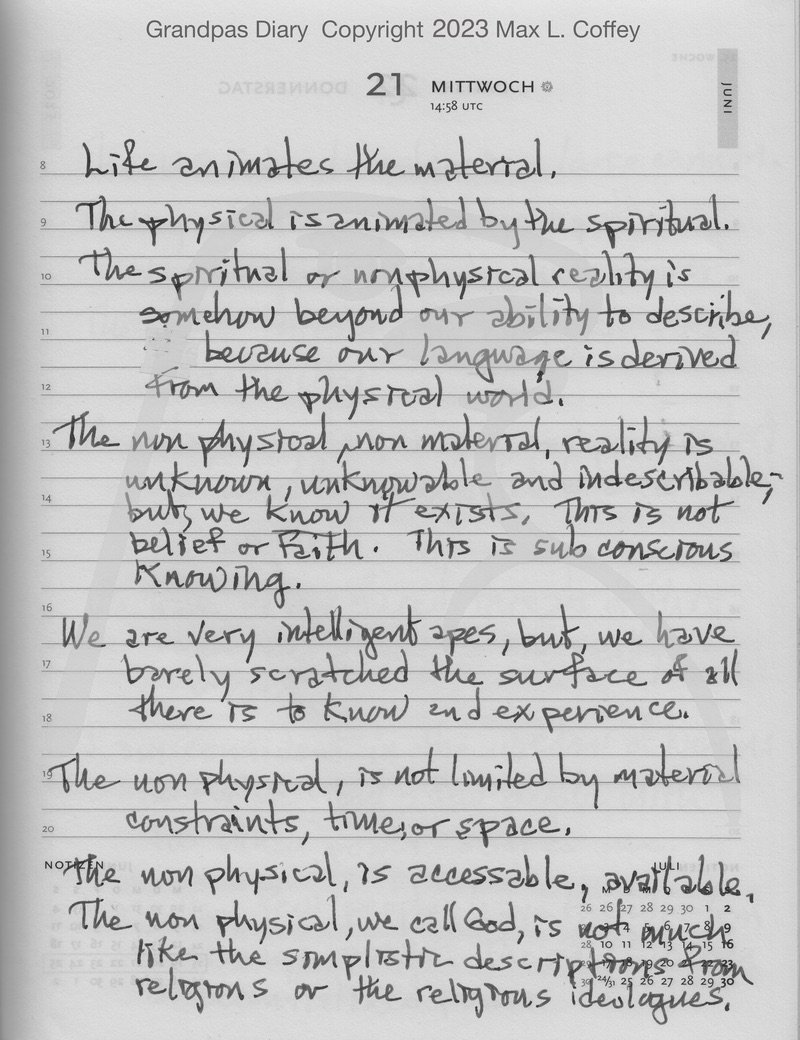 Grandpas Diary Copyright 2023 Max L. Coffey
21 MITTWOCH
14:58 UTC
JUNI
8 Life animates the material.
9 The physical is animated by the spiritual.
10 The spiritual or nonphysical reality is
somehow beyond our ability to describe,
11 because our language is derived
12 from the physical world.
13 The non physical, non material, reality is
unknown, unknowable and indescribable,
14 but, we know it exists. This is not
15 belief or Faith. This is sub conscious
Knowing.
16 We are very intelligent apes, but, we have
17 barely scratched the surface of all
18 there is to know and experience.
19 The non physical, is not limited by material
20 constraints, time, or space.
NOTIZEN JULI
The non physical, is accessable, available.
The non physical, we call God, is not much
like the simplistic descriptions from
religions or the religious ideologues.